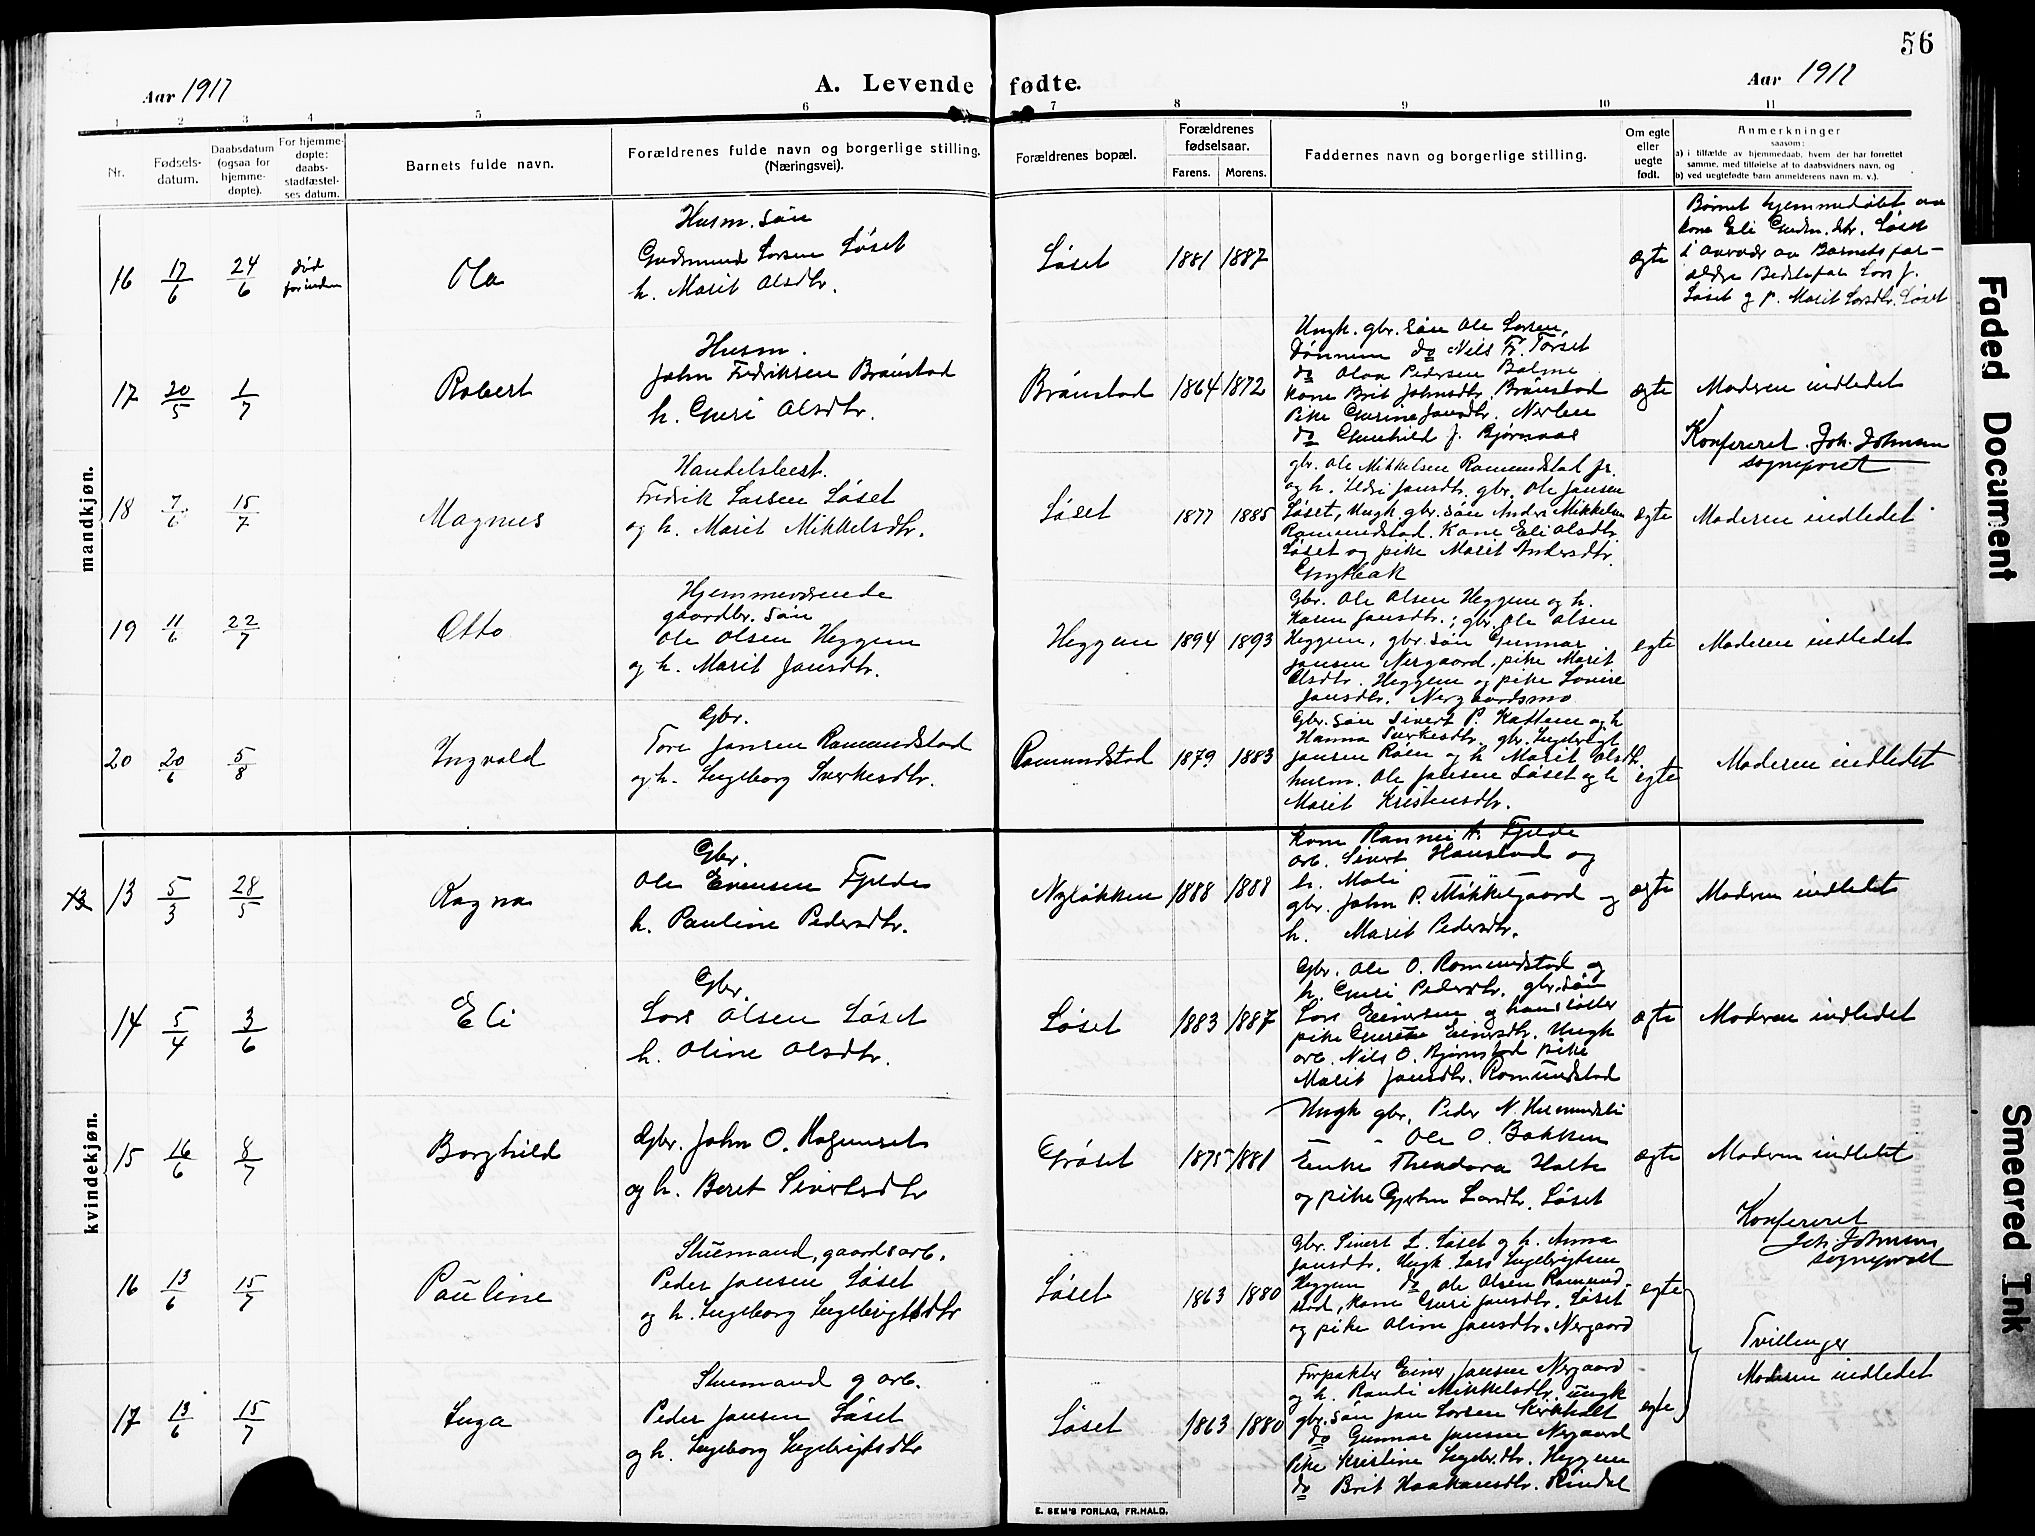 56
Aar 1917
A. Levende fødte.
Aar 1917
1 2 3 4 5 6 7 8 9 10 11
Nr.
Fødsels-
datum.
Daabsdatum
(ogsaa for
hjemme-
døpte).
For hjemme-
døpte:
daabs-
stadfæstel-
ses datum.
Barnets fulde navn.
Forældrenes fulde navn og borgerlige stilling.
(Næringsvei).
Forældrenes bopæl.
Forældrenes
fødselsaar.
Farens. Morens.
Faddernes navn og borgerlige stilling.
Om egte
eller
uegte
født.
Anmerkninger
saasom:
a) i tilfælde av hjemmedaab, hvem der har forrettet
samme, med tilføielse af to daabsvidners navn, og
b) ved uegtefødte barn anmelderens navn m. v.).
mandkjøn.
16 17/6 24/6
død
forinden
Ola
Husm. søn
Gudmund Larsen Løset
h. Marit Olsdtr.
Løset 1881 1887
ægte
Barnet hjemmedøbt av
kone Eli Gudm.dtr. Løset
i overvær av Barnets for-
ældre Bedstefar Lars J.
Løset og p. Marit Larsdtr. Løset
17 20/5 1/7
Robert
Husm.
John Fredriksen Brønstad
h. Guri Olsdtr.
Brønstad 1864 1872
Ungk. gbr. søn Ole Larsen
Dønnem do Nils Fr. Torset
do Olaa Pedersen Bolme
Kone Brit Johnsdtr. Brønstad
Pike Gurina Jansdtr. Nerlien
do Gunhild J. Bjørnaas
ægte
Moderen indledet
Konfereret Joh. Johnsen
sogneprest
18 7/6 15/7
Magnus
Handelsbest.
Fredrik Larsen Løset
og h. Marit Mikkelsdtr.
Løset 1877 1885
gbr. Ole Mikkelsen Romundstad jr.
og h. Ildri Jansdtr. gbr. Ole Jansen
Løset, Ungk. gbr. søn Anders Mikkelsen
Romundstad. Kone Eli Olsdtr.
Løset og pike Marit Andersdtr.
ægte
Moderen indledet
19 11/6 22/7
Otto
Hjemmeværende
gaardbr. søn
Ole Olsen Heggem
og h. Marit Jansdtr.
Heggem 1894 1893
Gbr. Ole Olsen Heggem og h.
Karen Jansdtr.; gbr. Ole Olsen
Heggem, gbr. søn Gunnar
Jansen Nergaard, pike Marit
Olsdtr. Heggem og pike Lovise
Jansdtr. Nergaardsmo
egte
Moderen indledet
20 20/6 5/8
Ingvald
Gbr.
Tore Jansen Romundstad
og h. Ingeborg Sverkesdtr.
Romundstad 1879 1883
Gbr. søn Sivert P. Kattem og h
Hanna Sverkesdtr. gbr. Ingebrigt
Jansen Røen og h Marit Olsdtr.
husm. Ole Jansen Løset og h
Marit Kristensdtr.
egte
Moderen indledet
kvindekjøn.
13 5/3 28/5
Ragna
Gbr.
Ole Evensen Fjelde
h. Pauline Pedersdtr.
Nyløkken 1888 1888
kone Rannei A. Fjelde
arb. Sivert Haustad og
h. Mali
gbr. John P. Mikkelgaard og
h. Marit Pedersdtr.
ægte
Moderen indledet
14 5/4 3/6
Eli
Gbr.
Lars Olsen Løset
h. Oline Olsdtr.
Løset 1883 1887
Gbr. Ole O. Romundstad og
h. Guri Pedersdtr. gbr. søn
Lars Einersen og hans søster
pike Gurine Einersdtr. Ungk
arb. Nils O. Bjørnstad pike
Marit Jansdtr. Romundstad
ægte
Moderen indledet
15 16/6 8/7
Borghild
Gbr. John O. Halgunset
og h. Beret Sivertsdtr
Grøset 1875 1881
Ungk gbr. Peder N. Hermundsli
- - Ole O. Bakken
Enke Theodora Holte
og pike Gjertru Larsdtr. Løset
ægte
Moderen indledet
Konfereret
Joh. Johnsen
sogneprest
16 13/6 15/7
Pauline
Stuemand, gaardsarb.
Peder Jansen Løset
og h. Ingeborg Ingebrigtsdtr
Løset 1863 1880
Gbr. Sivert L. Løset og h. Anna
Jansdtr. Ungk. Lars Ingebrigtsen
Heggem do Ole Olsen Romund-
stad, kone Guri Jansdtr. Løset
og pike Oline Jansdtr. Nergaard
egte
Tvillinger
Moderen indledet
17 13/6 15/7
Inga
Stuemand g arb.
Peder Jansen Løset
og h. Ingeborg Ingebrigtsdtr
Løset 1863 1880
Forpakter Einer Jansen Nergaard
og h. Randi Mikkelsdtr. ungk
gbr. søn Jan Larsen Kirkholt
do Gunnar Jansen Nergaard
Pike Kristine Ingebr.dtr. Heggem
do Brit Haakansdtr. Rindal
egte
E. SEM'S FORLAG, FR.HALD.
Faded Document
Smeared Ink